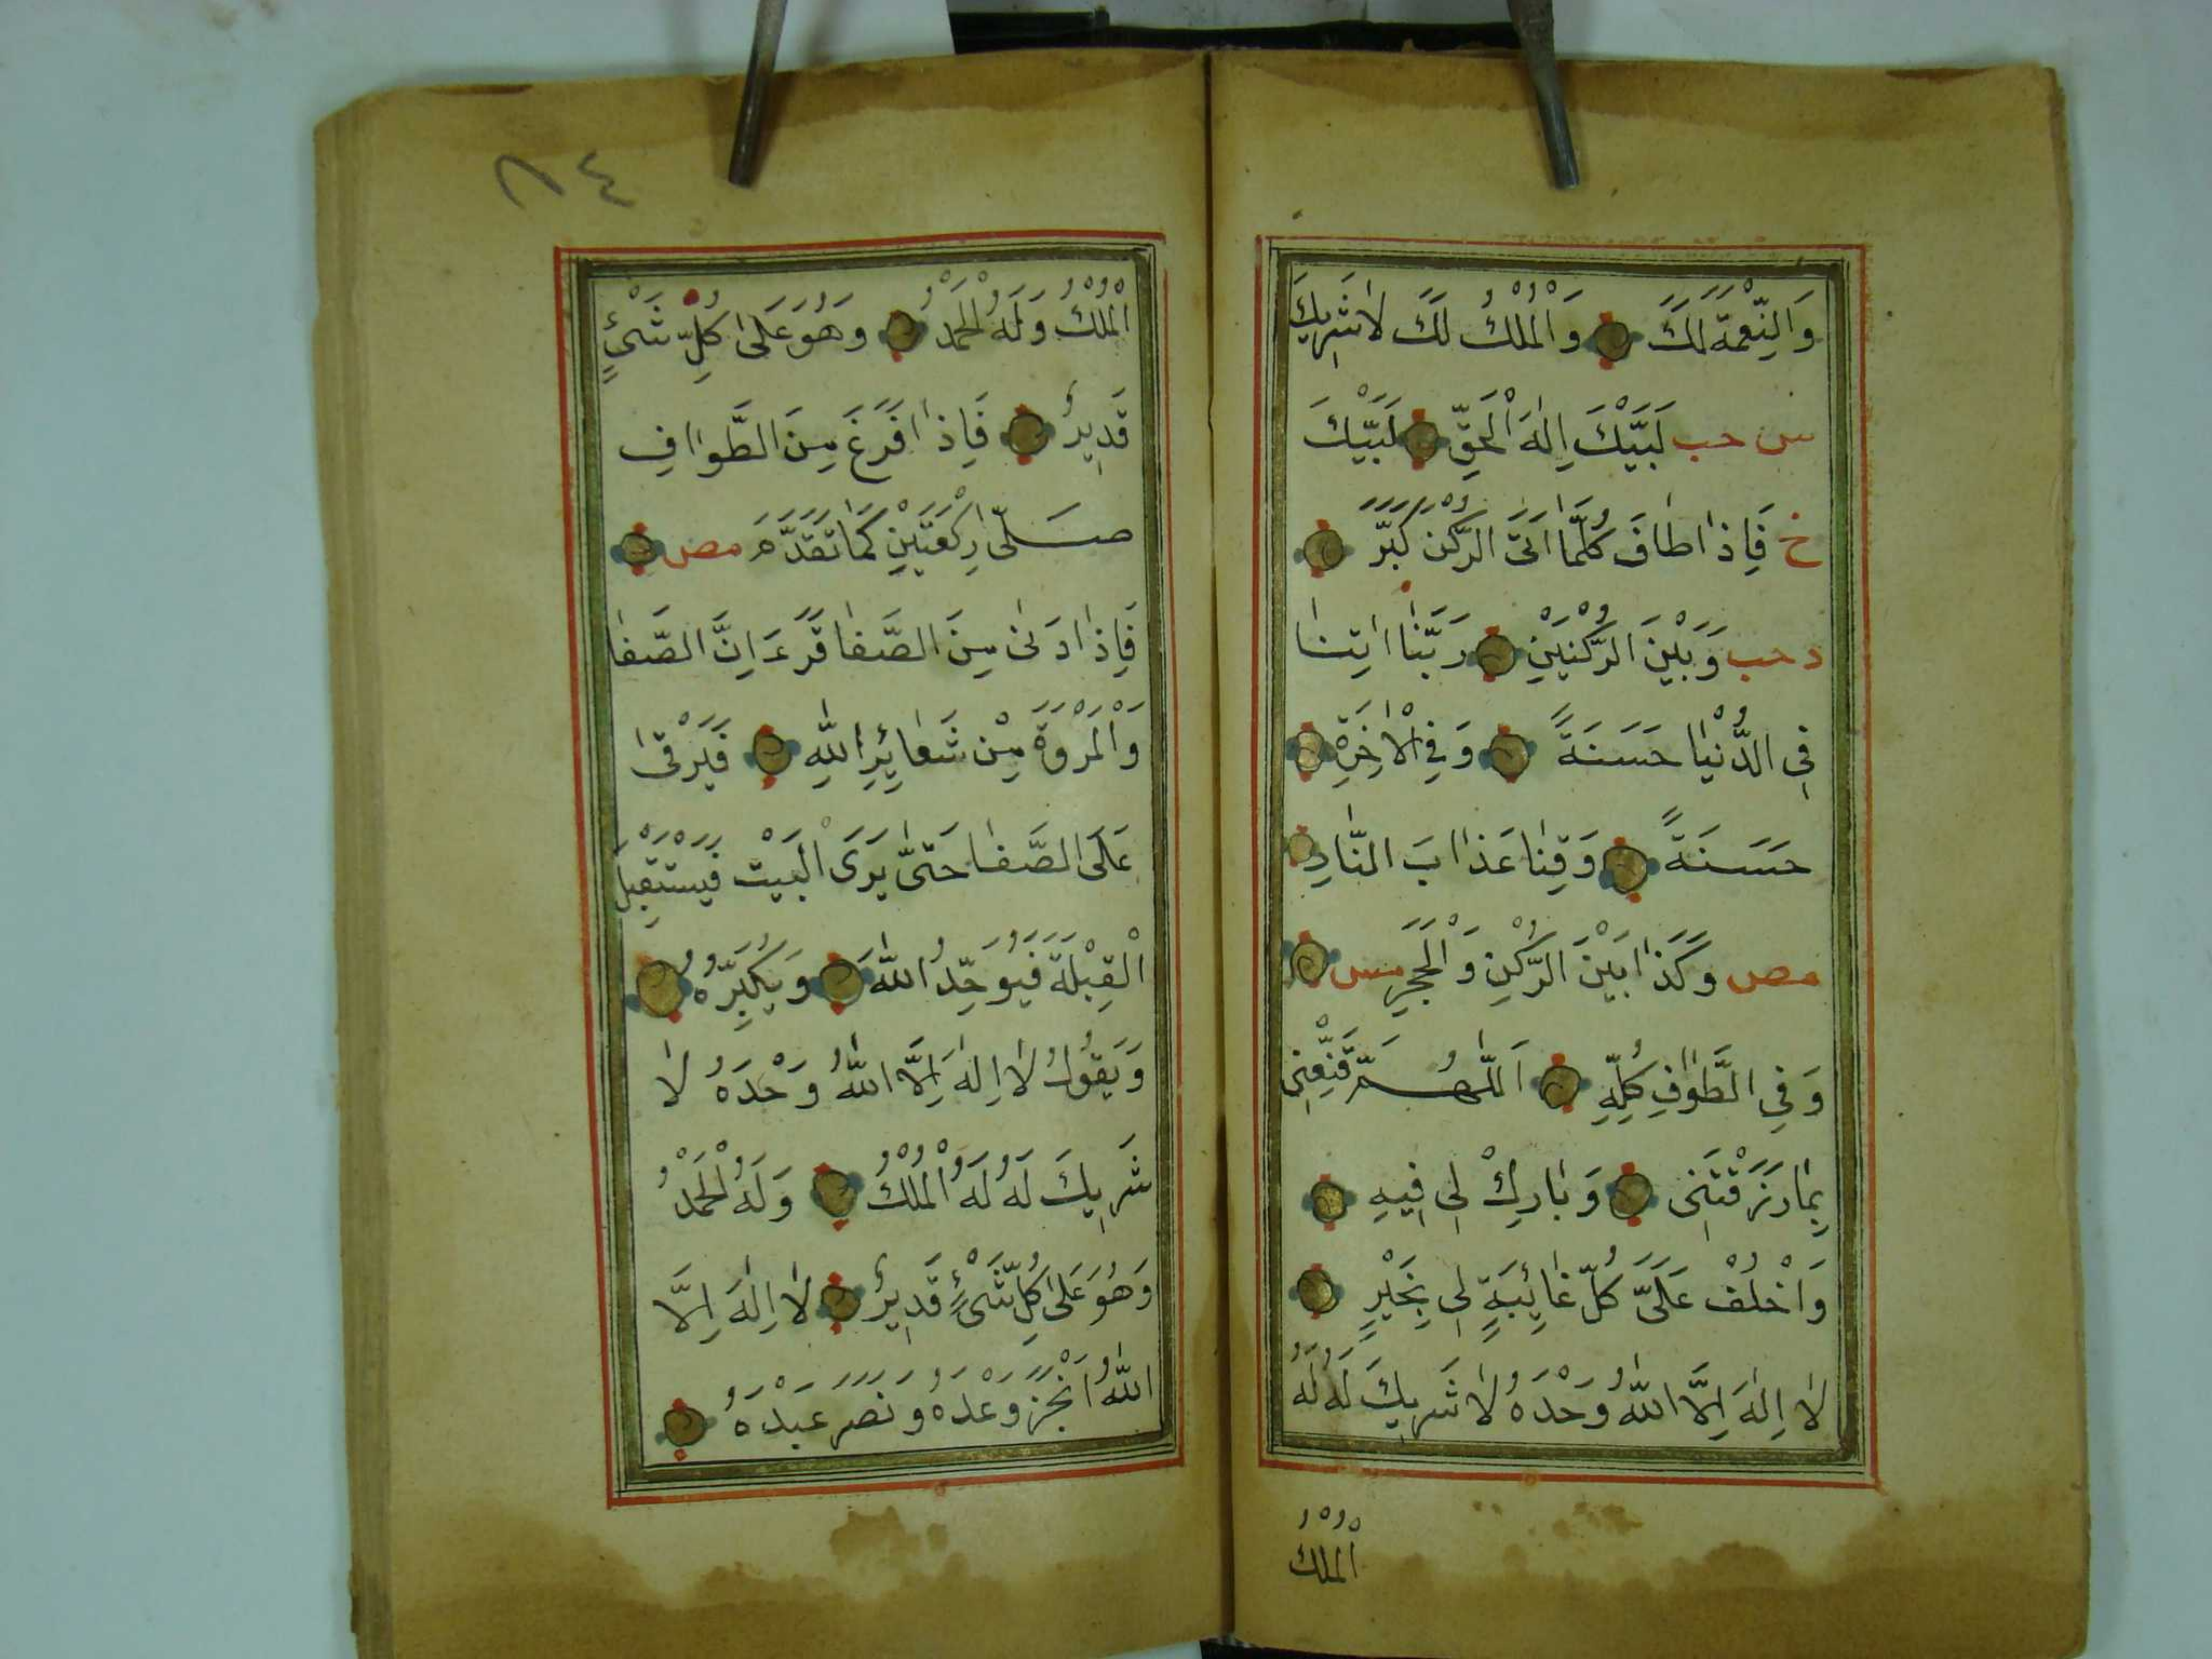 وَالنِّعْمَةَ لَكَ وَالْمُلْكُ لَكَ لَا شَرِيكَ
س حب لَبَّيْكَ اِلٰهَ الْحَقِّ لَبَّيْكَ
خ فَاِذَا طَافَ كُلَّمَا اَتَى الرُّكْنَ كَبَّرَ
د حب وَبَيْنَ الرُّكْنَيْنِ رَبَّنَا اٰتِنَا
فِي الدُّنْيَا حَسَنَةً وَفِي الْاٰخِرَةِ
حَسَنَةً وَقِنَا عَذَابَ النَّارِ
مص وَكَذَا بَيْنَ الرُّكْنِ وَالْحَجَرِ مس
وَفِي الطَّوَافِ كُلِّهِ اَللّٰهُمَّ قَنِّعْنِي
بِمَا رَزَقْتَنِي وَبَارِكْ لِي فِيهِ
وَاخْلُفْ عَلَيَّ كُلَّ غَائِبَةٍ لِي بِخَيْرٍ
لَا اِلٰهَ اِلَّا اللّٰهُ وَحْدَهُ لَا شَرِيكَ لَهُ لَهُ
الْمُلْكُ
٨٤
الْمُلْكُ وَلَهُ الْحَمْدُ وَهُوَ عَلٰى كُلِّ شَيْءٍ
قَدِيرٌ فَاِذَا فَرَغَ مِنَ الطَّوَافِ
صَلّٰى رَكْعَتَيْنِ كَمَا تَقَدَّمَ مص
فَاِذَا دَنٰى مِنَ الصَّفَا قَرَءَ اِنَّ الصَّفَا
وَالْمَرْوَةَ مِنْ شَعَائِرِ اللّٰهِ فَيَرْقٰى
عَلَى الصَّفَا حَتّٰى يَرَى الْبَيْتَ فَيَسْتَقْبِلَ
الْقِبْلَةَ فَيُوَحِّدُ اللّٰهَ وَيُكَبِّرُهُ
وَيَقُولُ لَا اِلٰهَ اِلَّا اللّٰهُ وَحْدَهُ لَا
شَرِيكَ لَهُ لَهُ الْمُلْكُ وَلَهُ الْحَمْدُ
وَهُوَ عَلٰى كُلِّ شَيْءٍ قَدِيرٌ لَا اِلٰهَ اِلَّا
اللّٰهُ اَنْجَزَ وَعْدَهُ وَنَصَرَ عَبْدَهُ